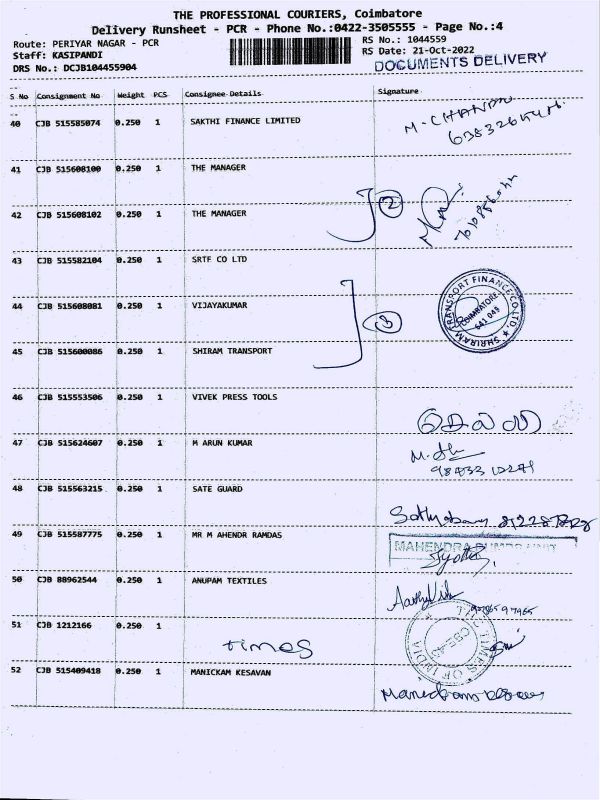 THE PROFESSIONAL COURIERS, Coimbatore
Delivery Runsheet - PCR - Phone No.:0422-3505555 - Page No.:4
Route: PERIYAR NAGAR - PCR
RS No.: 1044559
Staff: KASIPANDI
RS Date: 21-Oct-2022
DRS No.: DCJB104455904
DOCUMENTS DELIVERY
S No Consignment No Weight PCS Consignee Details Signature
40 CJB 515585074 0.250 1 SAKTHI FINANCE LIMITED
M. CHANDRU
41 CJB 515608100 0.250 1 THE MANAGER
2
42 CJB 515608102 0.250 1 THE MANAGER
43 CJB 515582104 0.250 1 SRTF CO LTD
SHRIRAM TRANSPORT FINANCE CO LTD
COIMBATORE
641 045
44 CJB 515608081 0.250 1 VIJAYAKUMAR
3
45 CJB 515600086 0.250 1 SHIRAM TRANSPORT
46 CJB 515553506 0.250 1 VIVEK PRESS TOOLS
47 CJB 515624607 0.250 1 M ARUN KUMAR
48 CJB 515563215 0.250 1 SATE GUARD
49 CJB 515587775 0.250 1 MR M AHENDR RAMDAS
MAHENDRA PUMPS UNIT
50 CJB 88962544 0.250 1 ANUPAM TEXTILES
51 CJB 1212166 0.250 1
times
THE TIMES OF INDIA
52 CJB 515409418 0.250 1 MANICKAM KESAVAN